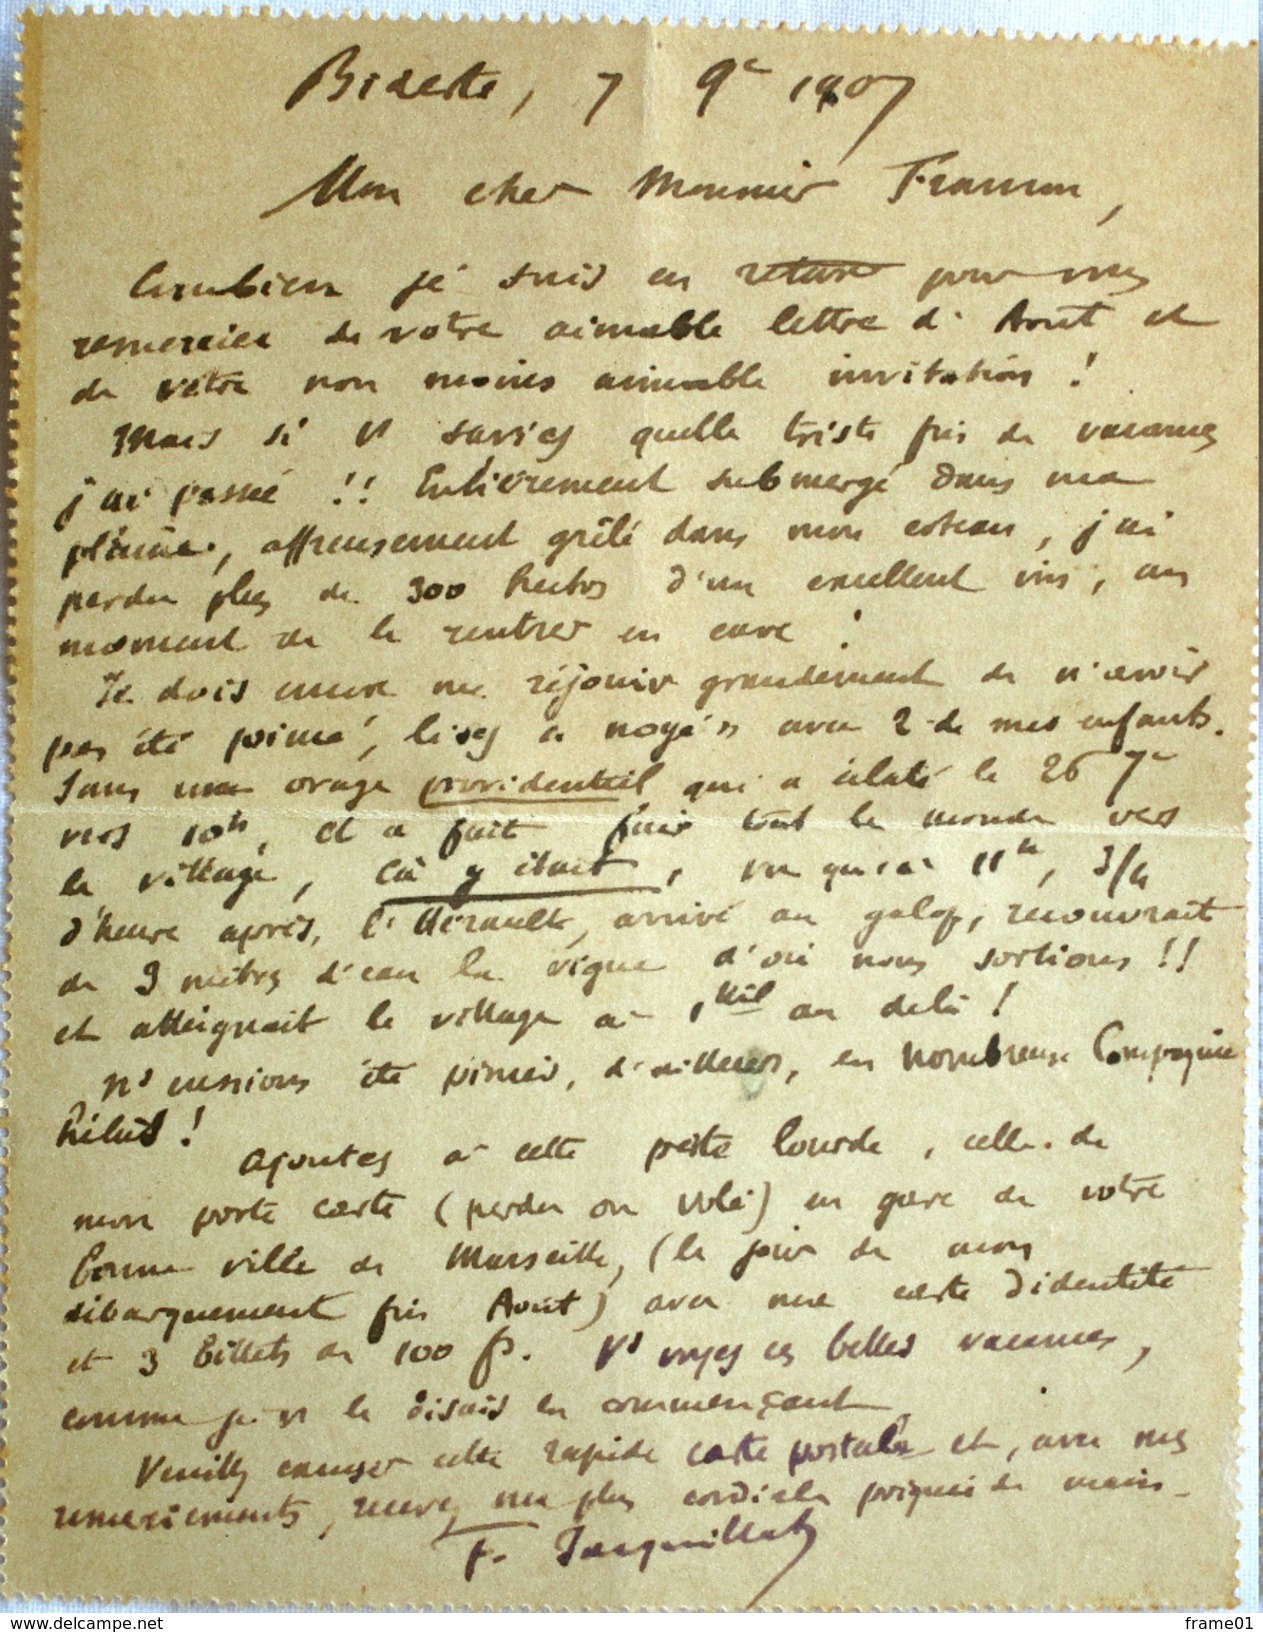 Bizerte, 7 9re 1907
Mon cher Monsieur
Combien je suis en retard pour vous
remercier de votre aimable lettre d'Aout et
de votre non moins aimable invitation !
Mais si vs saviez quelle triste fin de vacances
j'ai passé !! Entièrement submergé dans ma
plaine, affreusement grêlé dans mon coteau, j'ai
perdu plus de 300 hectos d'un excellent vin, au
moment de le rentrer en cave !
Je dois encore me réjouir grandement de n'avoir
pas été pincé, lisez noyé, avec 2 de mes enfants.
Sans un orage providentiel qui a éclaté le 26 7re
vers 10h, et a fait fuir tout le monde vers
le village, ça y était, vu qu'à 11h, 3/4
d'heure après, l'Hérault, arrivé au galop, recouvrait
de 3 mètres d'eau la vigne d'où nous sortions !!
et atteignait le village à 1 kil au delà !
Ns eussions été pincés, d'ailleurs, en nombreuse Compagnie
hélas !
Ajoutez à cette perte lourde, celle de
mon porte carte (perdu ou volé) en gare de votre
bonne ville de Marseille, (le jour de mon
débarquement fin Aout) avec ma carte d'identité
et 3 billets de 100 f. Vs voyez ces belles vacances,
comme je vs le disais en commençant
Veuillez excuser cette rapide carte postale et, avec mes
remerciements, recevez ma plus cordiale poignée de main.
F. Jacquillat